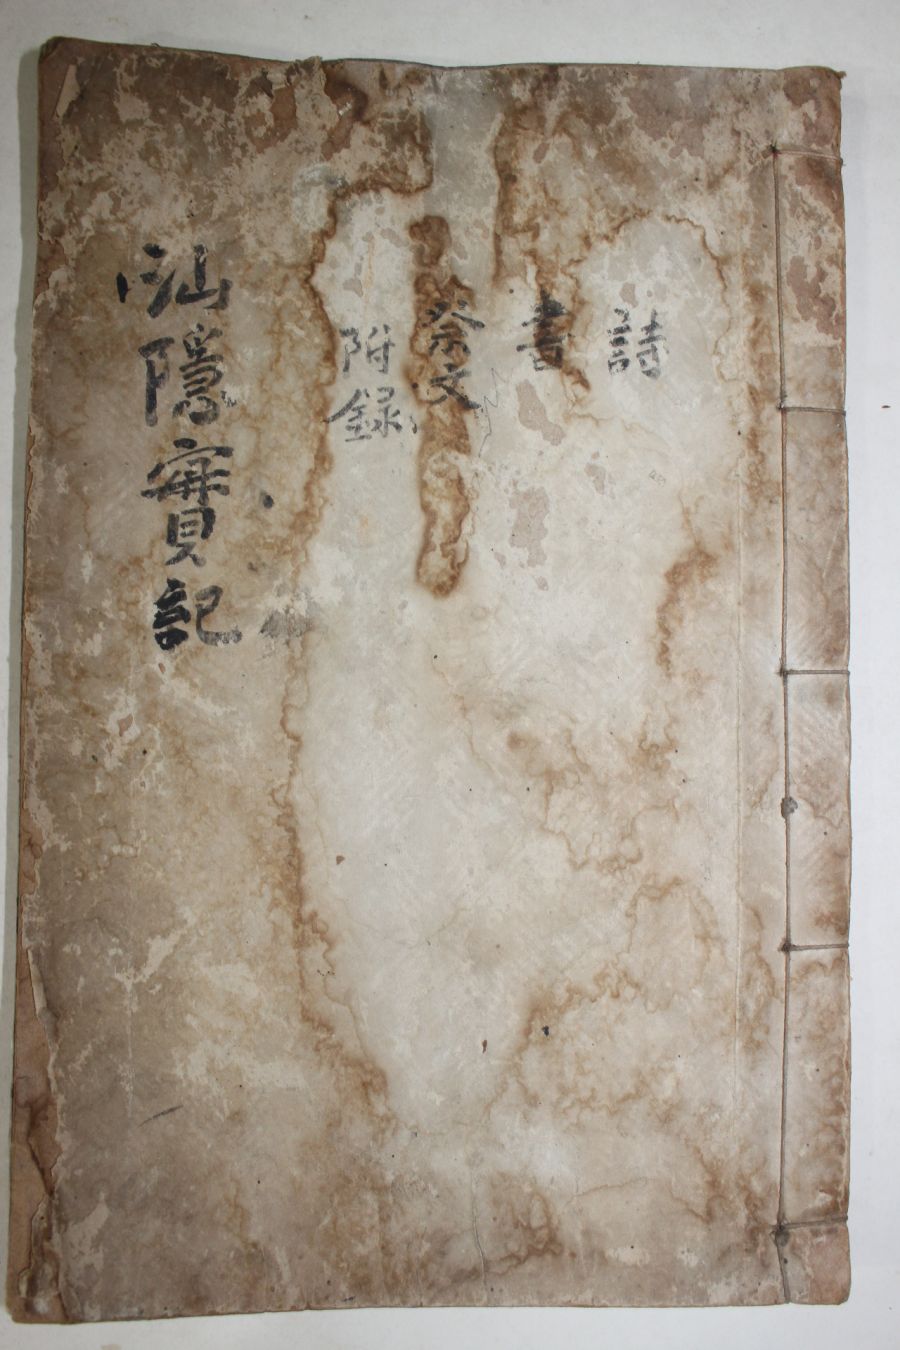 詩
書
祭文
附錄
汕隱實記